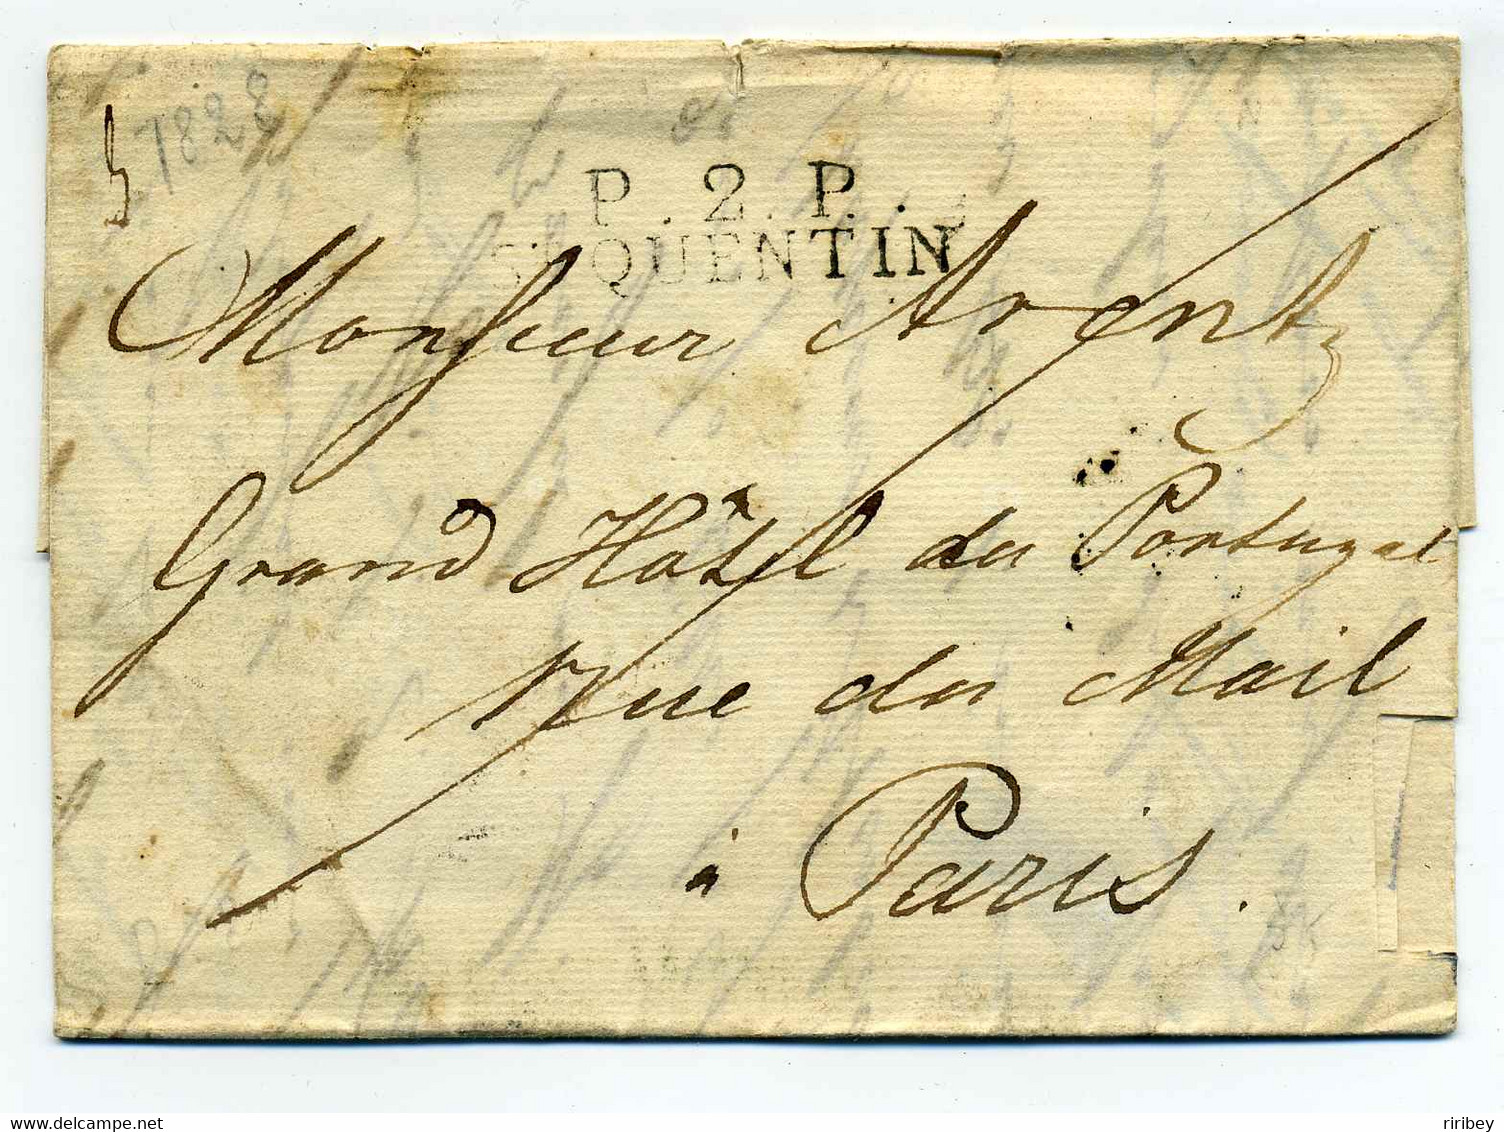 1828
P. 2. P.
ST QUENTIN
Monsieur Arentz
Grand Hôtel du Portugal
Rue du Mail
à Paris.
delcampe.net
riribey